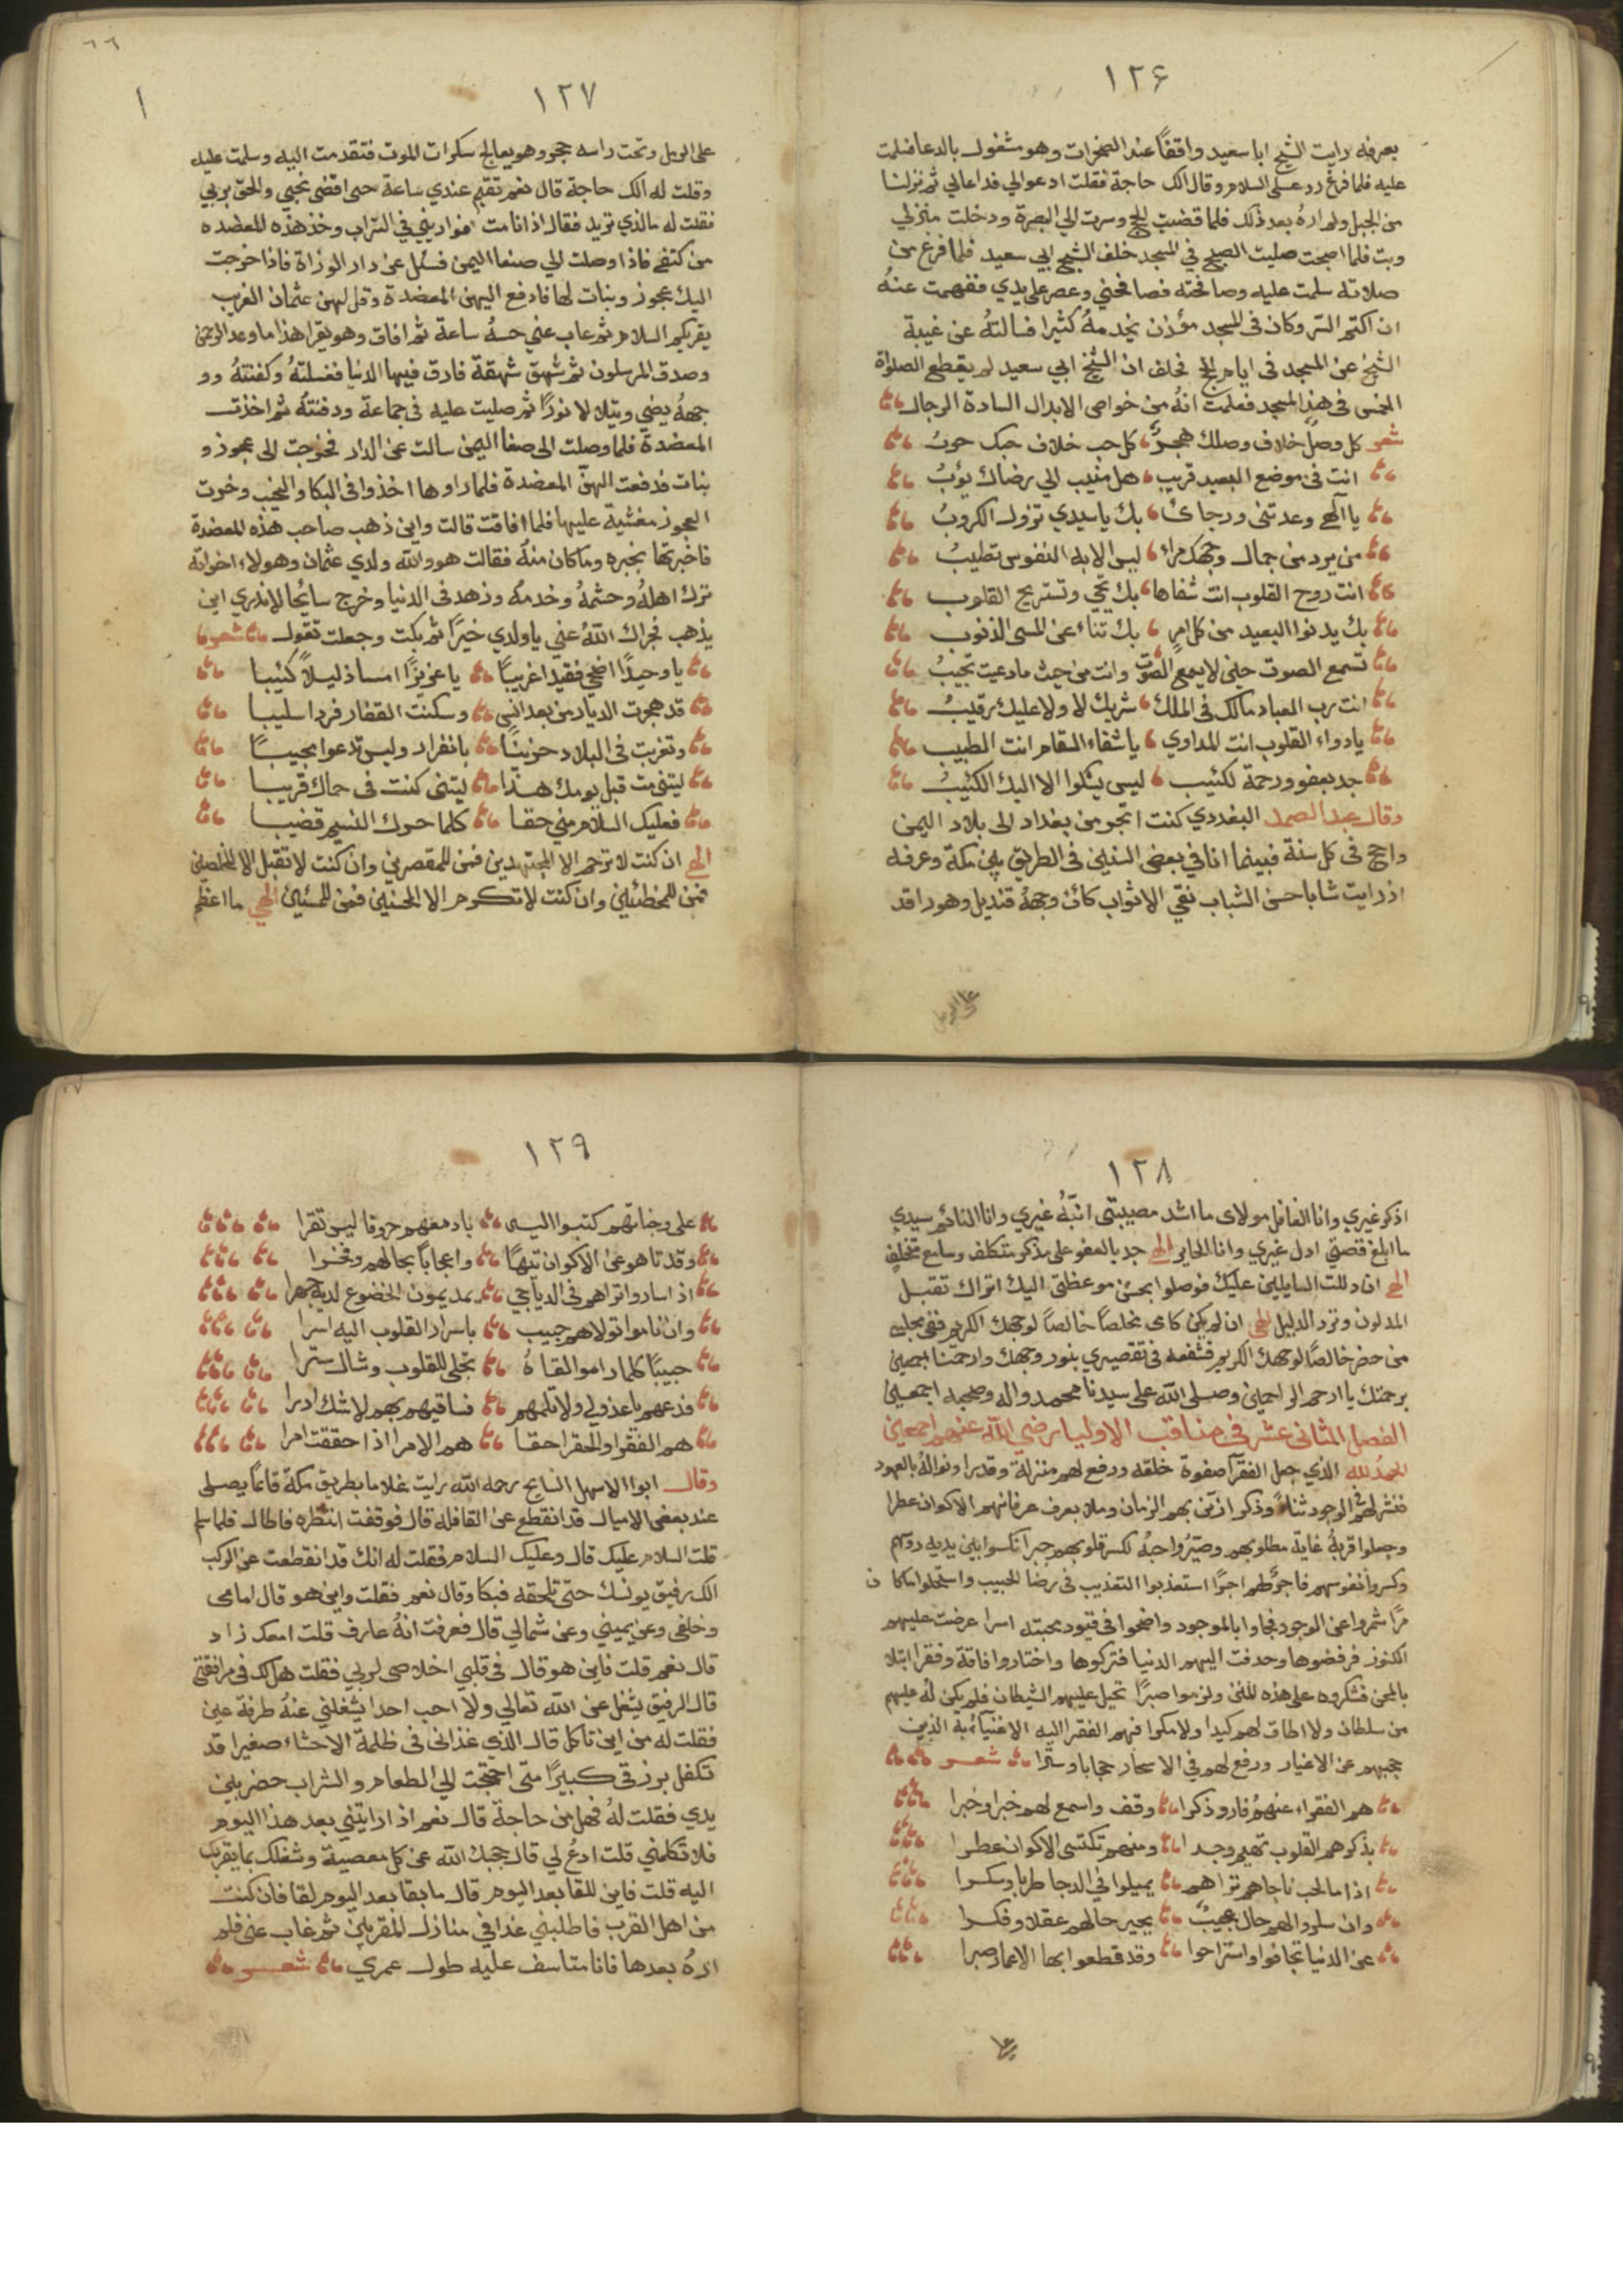 ١٢۶
بعرفه رايت الشيخ ابا سعيد واقفاً عند الصخرات وهو مشغول بالدعا فسلمت
عليه فلما فرغ رد على السلام وقال الك حاجة فقلت ادعوا لي فدعا لي ثم نزلنا
من الجبل ولم اره بعد ذلك فلما قضيت الحج وسرت الي البصرة ودخلت منزلي
وبت فلما اصبحت صليت الصبح في المسجد خلف الشيخ ابي سعيد فلما فرغ من
صلاته سلمت عليه وصافحته فصافحني وعصر على يدي ففهمت عنهُ
ان اكتم السر وكان في المسجد مؤذن يخدمهُ كثيرا فسالتهُ عن غيبة
الشيخ عن المسجد في ايام الحج فحلف ان الشيخ ابي سعيد لم يقطع الصلواة
الخمس في هذا المسجد فعلمت انهُ من خواص الابدال السادة الرجال
شعر كل وصل خلاف وصلك هجرٌ كل حب خلاف حبك حوبُ
انت في موضع البعيد قريب هل منيب الي رضاك يؤبُ
يا الهي وعدتني ورجائ بك يا سيدي تزول الكروبُ
من يرد من جمال وجهك مراء ليس الا به النفوس تطيبُ
انت روح القلوب انت شفاها بك تحي وتستريح القلوب
بك يدنوا البعيد من كل امر بك تناء عن المسي الذنوب
تسمع الصوت حين لا يسمع الصوت وانت من حيث ما دعيت تجيبُ
انت رب العباد مالك في الملك شريك لا ولا عليك رقيبُ
يا دواء القلوب انت المداوي يا شفاء السقام انت الطبيب
جد بعفو ورحمة لكئيب ليس يشكوا الا اليك الكئيبُ
وقال عبد الصمد البغددي كنت اتجر من بغداد الى بلاد اليمن
واحج في كل سنة فبينما انا في بعض السنين في الطريق بين مكة وعرفه
اذ رايت شابا حسن الشباب نقي الاثواب كانّ وجههُ قنديل وهو راقد
على الرمل
٦٦
١
١٢٧
على الرمل وتحت راسه حجر وهو يعالج سكرات الموت فتقدمت اليه وسلمت عليه
وقلت له الك حاجة قال نعم تقيم عندي ساعة حتى اقضى نحبي والحق بربي
فقلت له ما الذي تريد فقال اذا انا مت فواريني في التراب وخذ هذه المعضده
من كتفي فاذا وصلت الي صنعا اليمن فسئل عن دار الوزاة فاذا خرجت
اليك عجوز وبنات لها فادفع اليهن المعضدة وقل لهن عثمان الغريب
يقريكم السلام ثم غاب عني حسهُ ساعة ثم افاق وهو يقرا هذا ما وعد الرحمن
وصدق المرسلون ثم شهق شهقة فارق فيها الدنيا فغسلتهُ وكفنتهُ وو
جههُ يضي ويتلالا نورًا ثم صليت عليه في جماعة ودفنتهُ ثم اخذت
المعضدة فلما وصلت الى صنعا اليمن سالت عن الدار فخرجت الى عجوز و
بنات فدفعت اليهنّ المعضدة فلما راوها اخذوا في البكا والنحيب وخرت
العجوز مغشية عليها فلما افاقت قالت واين ذهب صاحب هذه المعضدة
فاخبرتها بخبره وما كان منهُ فقالت هو والله ولدي عثمان وهولاء اخواته
ترك اهلهُ وحشمهُ وخدمهُ وزهد في الدنيا وخرج سايحًا لا ندري اين
يذهب فجزاك اللهُ عني يا ولدي خيرًا ثم بكت وجعلت تقول شعر
يا وحيدًا اضحي فقيدا غريبًا يا عزيزًا امسا ذليلاً كئيبا
قد هجرت الديار من بعد انس وسكنت القفار فردا سليبا
وتغربت في البلاد حزينًا بانفراد وليس تدعوا بجيبًا
ليتني مت قبل يومك هذا ليتني كنت في حماك قريبا
فعليك السلام مني حقا كلما حرك النسيم قضيبا
الهي ان كنت لا ترحم الا المجتهدين فمن للمقصرين وان كنت لا تقبل الا المخلصين
فمن للمخطئين وان كنت لا تكرم الا المحسنين فمن للمسئين الهي ما اعظم
١٢٨
اذكر غيري وانا الغافل مولاى ما اشد مصيبتى انبّهُ غيري وانا النائم سيدي
ما ابلغ قصتي ادل غيري وانا الحاير الهي جد بالعفو على مذكر متكلف وسامع متخلف
الهي ان دللت السايلين عليك فوصلوا بحسن موعظتى اليك اتراك تقبل
المدلون وترد الدليل الهي ان لم يكن كلامى مخلصاً خالصاً لوجهك الكريم ففي مجلسي
من حضر خالصًا لوجهك الكريم فشفعه في تقصيري بنور وجهك وارحمنا اجمعين
برحمتك يا ارحم الراحمين وصلى الله على سيدنا محمد واله وصحبه اجمعين
الفصل الثانى عشر في مناقب الاوليا رضي الله عنهم اجمعين
الحمدُ لله الذي جعل الفقرآ صفوة خلقه ورفع لهم منزلة وقدرا ونوالهُ بالعهود
فنشر لهم في الوجود ثناءً وذكرا زيّن بهم الزمان وملا بعرف عرفانهم الاكوان عطرا
وجعلوا قربهُ غاية مطلوبهم وصيّروا حبهُ لكسر قلوبهم جبرا نكسوا بين يديه رؤسهم
وكسروا نفوسهم فاجزَل لهم اجرًا استعذبوا التعذيب في رضا الحبيب واستحلوا ما كان
مرًا شمروا عن الوجود فجاوا بالموجود واضحوا في قيود محبته اسرا عرضت عليهم
الكنوز فرفضوها وحدفت اليهم الدنيا فتركوها واختاروا فاقة وفقرا ابتلاهم
بالمحن فشكروه على هذه المنن ولزموا صبرًا تحيل عليهم الشيطان فلم يكن لهُ عليهم
من سلطان ولا اطاق لهم كيدا ولا مكرا فهم الفقرا اليه الاغنيآءُ به الذين
حجبهم عن الاغيار ورفع لهم في الاسحار حجابا وسترًا شعر
هم الفقراء عنهمُ فارو ذكرا وقف واسمع لهم خبرا وخبرا
بذكرهم القلوب تهيم وجدا ومنهم تكتسى الاكوان عطرا
اذا ما الحب ناجاهم تراهم يميلوا في الدجا طربا وسكرا
وان سلو الهم حال عجيبٌ يحير حالهم عقلا وفكرا
عن الدنيا تجافوا واستراحوا وقد قطعوا بها الاعمار صبرا
على
١٢٩
على وجناتهم كتبوا اليه بادمعهم حروفا ليس تقرا
وقد تاهو على الاكوان تيهًا واعجاباً بحالهم وفخرا
اذا ساروا تراهم في الدياجي يديمون الخضوع لديه جهرا
وان ناموا تولاهم حبيب باسرار القلوب اليه اسرا
حبيبًا كلما راموا لقاهُ تجلى للقلوب وشال سترا
فدعهم يا عذولي ولا تلمهم فساقيهم بهم لا شك ادرا
هم الفقرا والحقرا حقا هم الامرا اذا حققت امرا
وقال ابوا الاسهل السايح رحمه الله رايت غلاما بطريق مكة قائماً يصلى
عند بعض الاميال قد انقطع عن القافله قال فوقفت انتظره فاطال فلما سلم
قلت السلام عليك قال وعليك السلام فقلت له انك قد انقطعت عن الركب
الك رفيق يونسك حتّى تلحقه فبكا وقال نعم فقلت واين هو قال امامى
وخلفى وعن يميني وعن شمالي قال فعرفت انهُ عارف قلت امعك زاد
قال نعم قلت فاين هو قال في قلبي اخلاصى لربي فقلت هل لك في مرافقتي
قال الرفيق يشغل عن الله تعالي ولا احب احدا يشغلني عنهُ طرفة عين
فقلت له من اين تاكل قال الذي غذانى في ظلمة الاحشاء صغيرا قد
تكفل برزقي كبيرًا متى احتجت الي الطعام والشراب حضر بين
يدي فقلت لهُ فهل من حاجة قال نعم اذا رايتني بعد هذا اليوم
فلا تكلمني قلت ادعُ لي قال حجبك الله عن كل معصية وشغلك بما يقربك
اليه قلت فاين اللقا بعد اليوم قال ما بقا بعد اليوم لقا فان كنت
من اهل القرب فاطلبني غدا في منازل المقربين ثم غاب عنى فلم
ارهُ بعدها فانا متاسف عليه طول عمري شعر